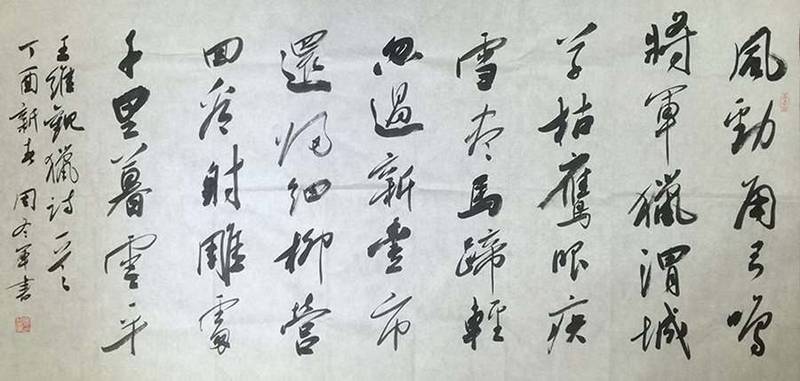 風勁角弓鳴
將軍獵渭城
草枯鷹眼疾
雪尽馬蹄輕
忽過新豐市
還歸細柳營
回看射雕處
千里暮雲平
王維觀獵詩一首
丁酉新春 周冬軍書